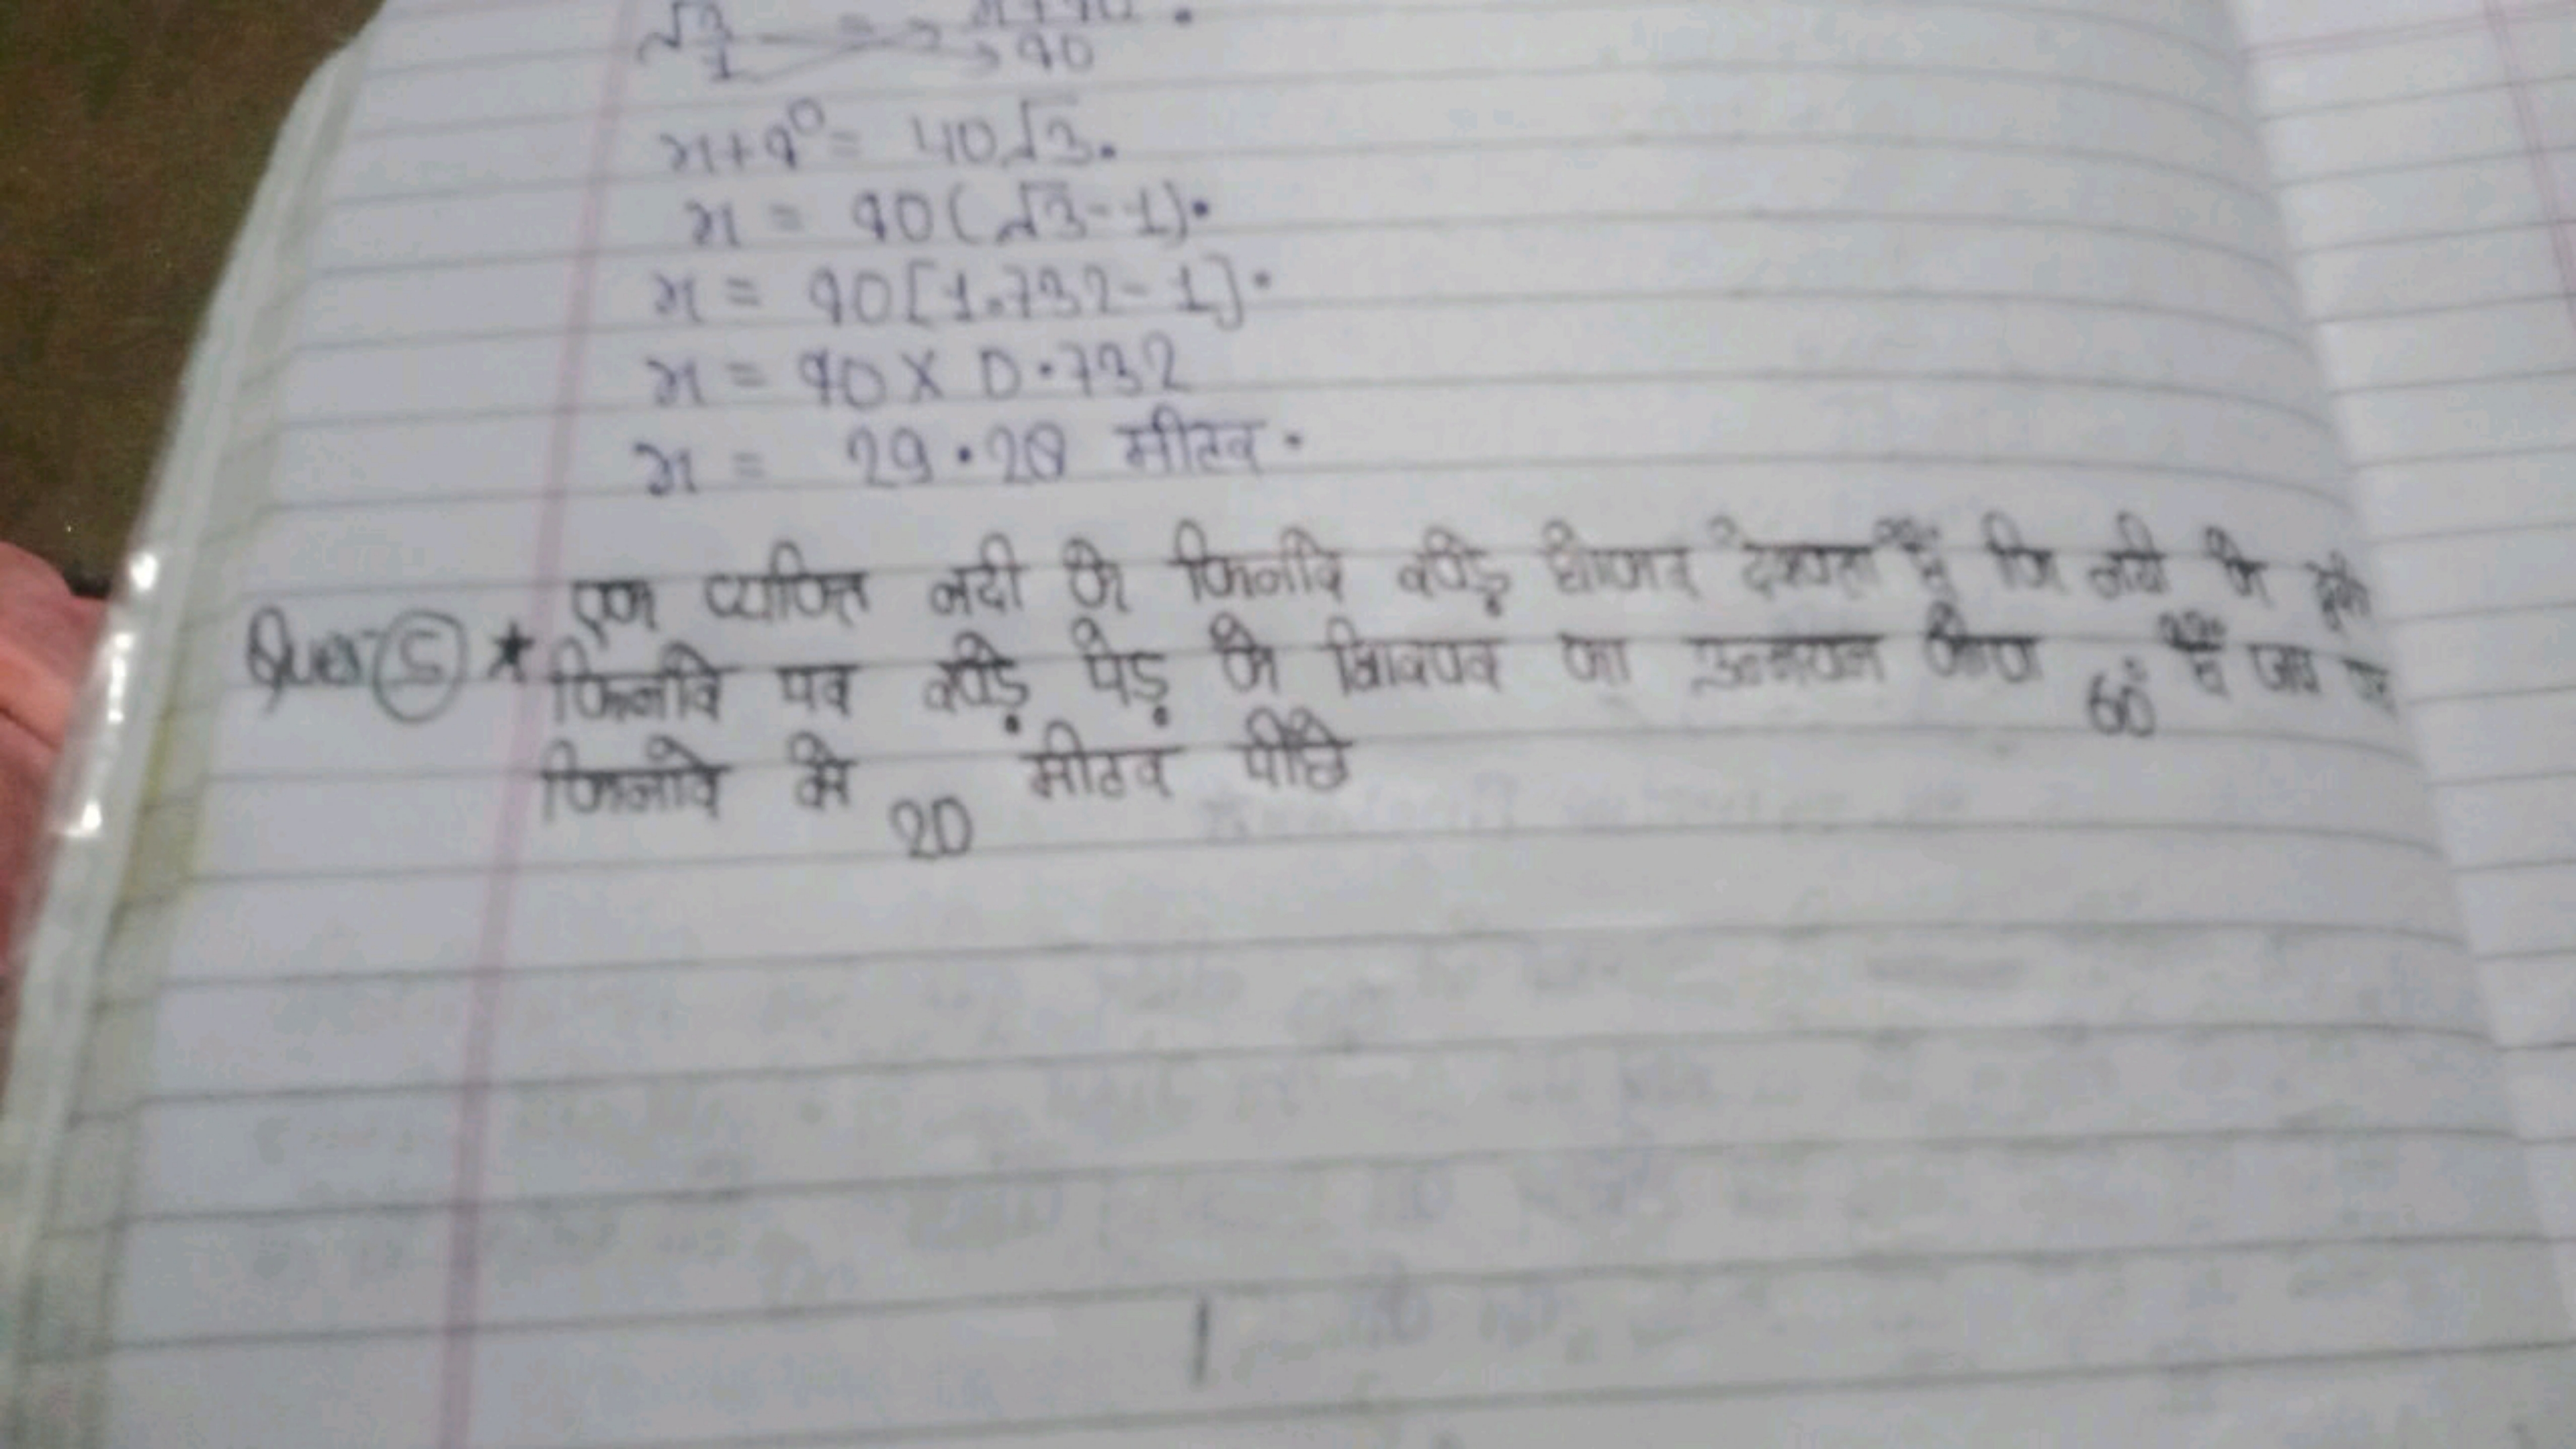 √3/1 = x+40/40 .
x+40 = 40√3.
x = 40(√3-1).
x = 40[1.732-1].
x = 40 X 0.732
x = 29.28 मीटर.
एक व्यक्ति नदी के किनारे खड़े होकर देखता है कि नदी के दूसरे
Ques-(5) ★ किनारे पर खड़े पेड़ के शिखर का उन्नयन कोण 60° है जब वह
किनारे से 20 मीटर पीछे